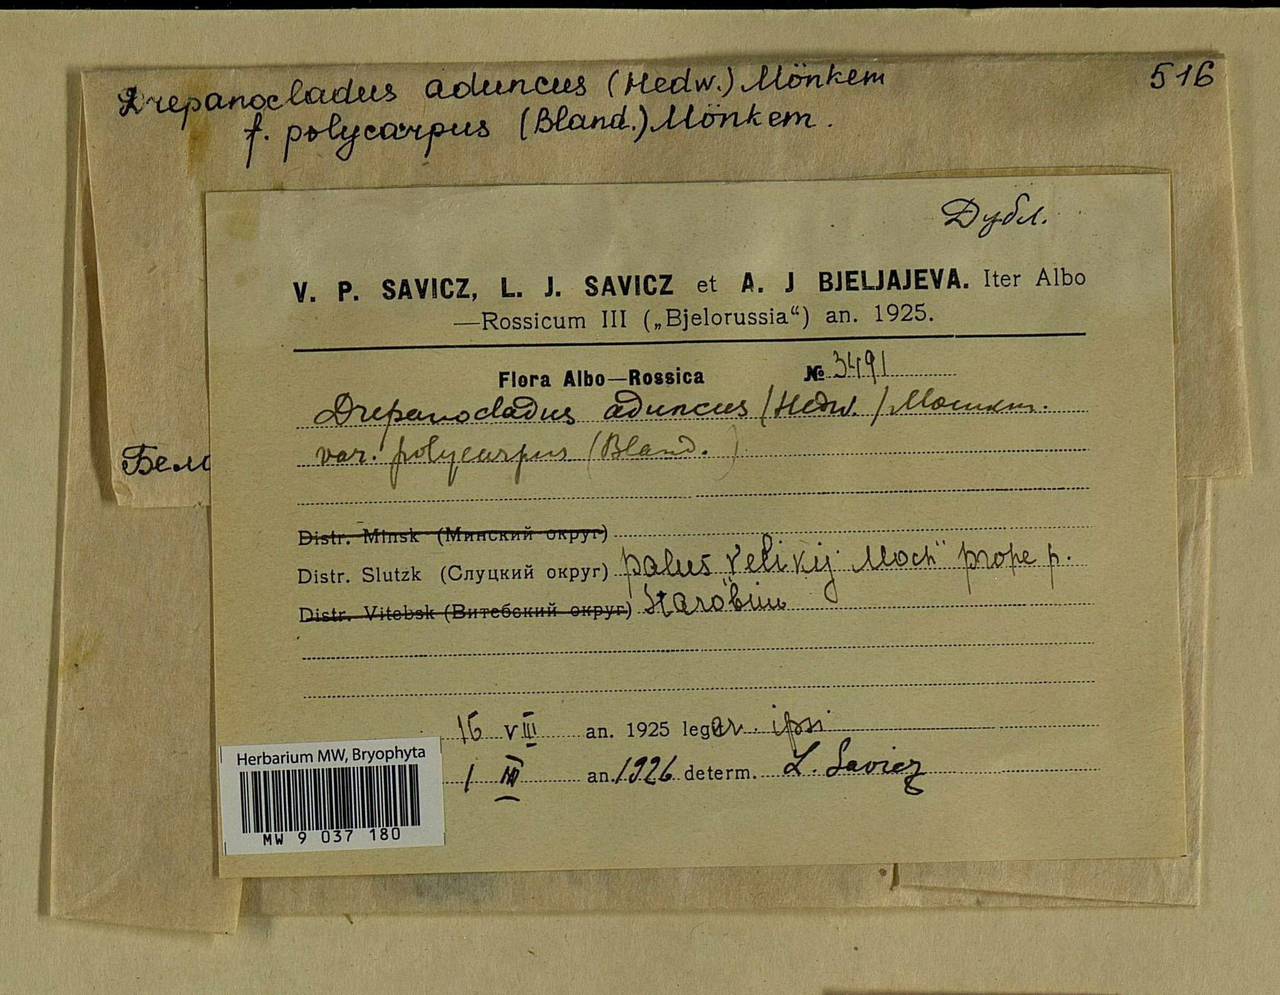 Drepanocladus aduncus (Hedw.) Mönkem
516
f. polycarpus (Bland.) Mönkem.
Дубл.
V. P. SAVICZ, L. J. SAVICZ et A. J BJELJAJEVA. Iter Albo
—Rossicum III („Bjelorussia“) an. 1925.
Flora Albo—Rossica № 3491
Drepanocladus aduncus (Hedw.) Moenkm.
var. polycarpus (Bland.)
Бело
Distr. Minsk (Минский округ)
Distr. Slutzk (Слуцкий округ) palus "Velikij Moch" prope p.
Distr. Vitebsk (Витебский округ) Starobin
16 VIII an. 1925 leg ipsi
1 III an. 1926 determ. L. Savicz
Herbarium MW, Bryophyta
MW 9 037 180